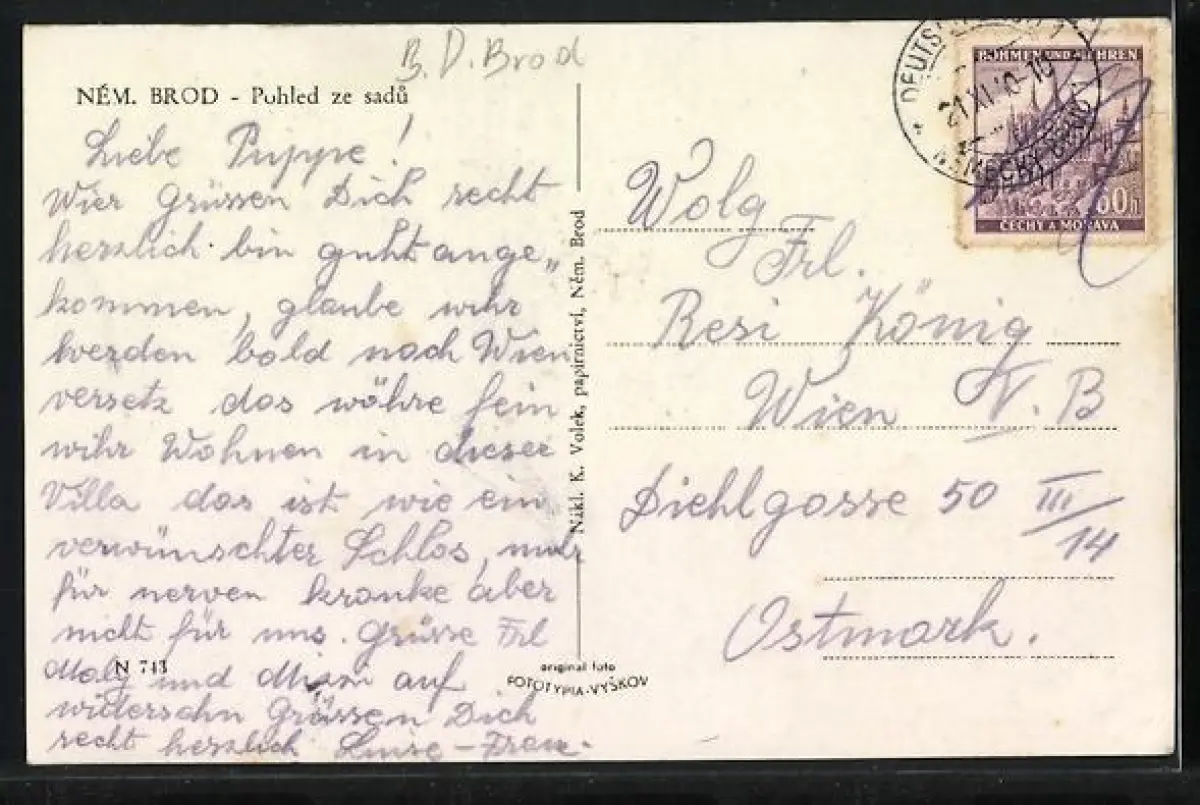 B. D. Brod
NĚM. BROD - Pohled ze sadů
Liebe Puppe!
Wier Grüssen Dich recht
herzlich. bin guht ange„
kommen, glaube wihr
werden bald nach Wien
versetz das währe fein
wihr Wohnen in dieser
Villa das ist wie ein
verwünschter Schlos, nuhr
für nerven kranke aber
nicht für uns. Grüsse Frl
Maly und Mimi auf
widersehn Grüssen Dich
recht herzlich Luise - Franz-
N 743
Nákl. K. Volek, papírnictví, Něm. Brod
original foto
FOTOTYPIA-VYŠKOV
BÖHMEN UND MÄHREN
60h
ČECHY A MORAVA
21 XI 40-10
NĚMECKÝ BROD
Wolg
Frl.
Resi König
Wien
Diehlgasse 50 III/14
Ostmark.